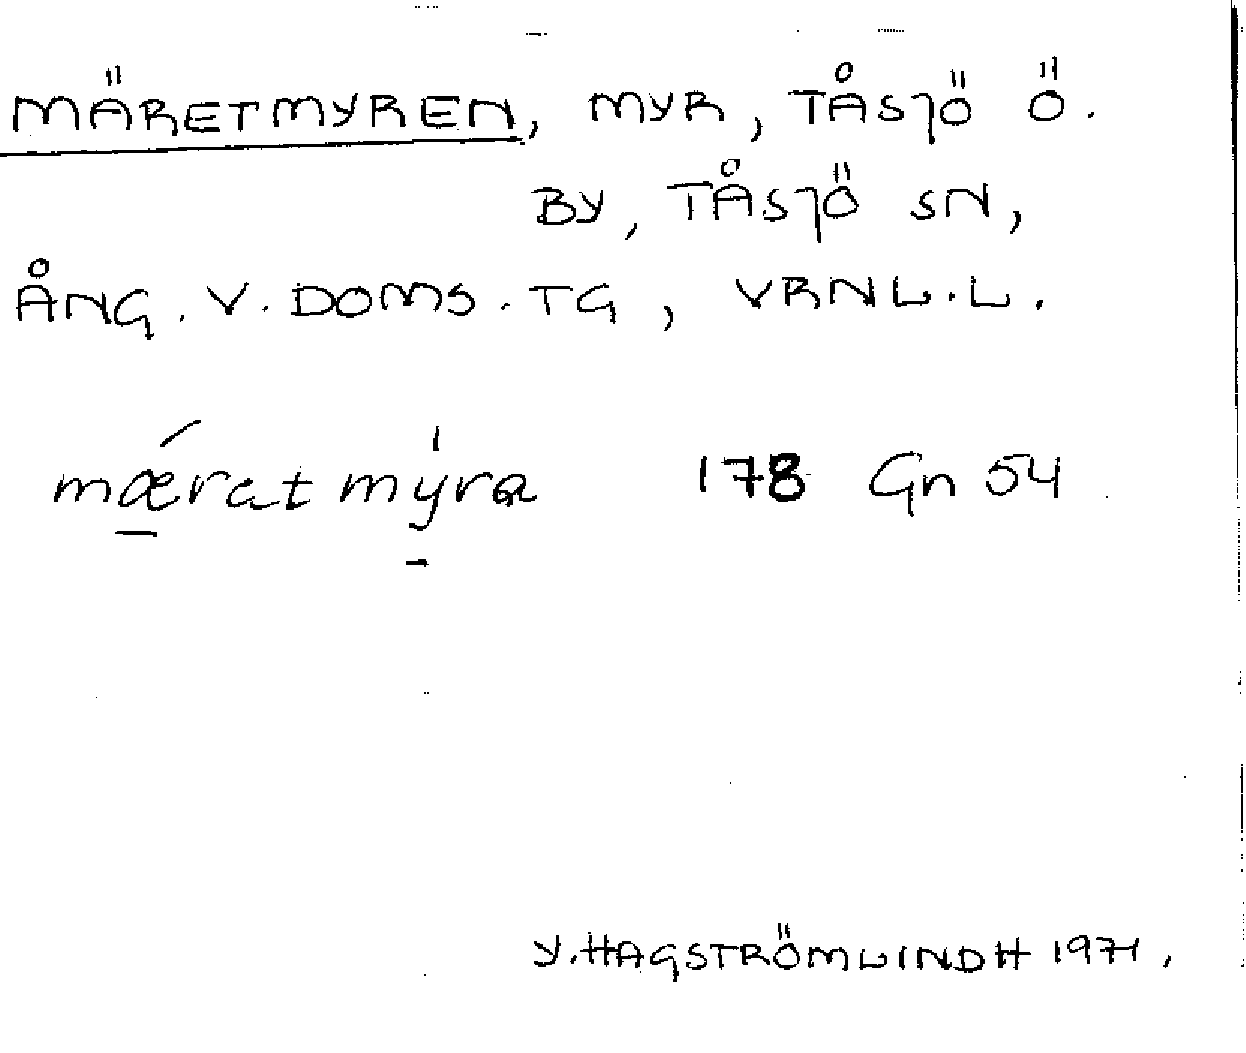 MÄRETMYREN, MYR, TÅSJÖ Ö.
BY, TÅSJÖ SN,
ÅNG. V. DOMS. TG, VRNL.L.
mærat mýra 178 Gn 54
Y. HAGSTRÖM LINDH 1971.